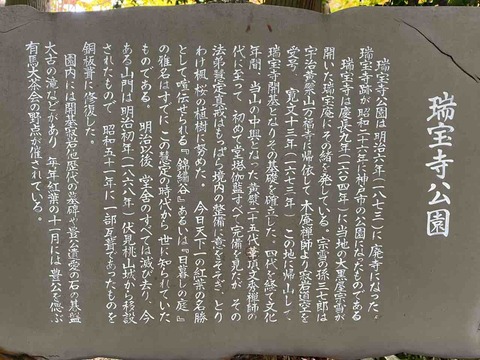 瑞宝寺公園
瑞宝寺公園は明治六年(一八七三)に廃寺になった。
瑞宝寺跡が昭和二十六年に神戸市の公園になったものである
瑞宝寺は慶長九年(一六〇四)に当地の大黒屋宗雪が
開いた瑞宝庵にその緒を発している。宗雪の孫三七郎は
宇治黄檗山万福寺に帰依して木庵禅師より寂岩道空を
受号、寛文十三年(一六七三年)この地に帰山して、
瑞宝寺開基となりその基礎を確立した。四代を経て文化
年間、当山の中興となった黄檗二十五代華頂文秀禅師の
代に至って初めて堂塔伽藍すべて完備を見たが、その
法弟慧定真戒はもっぱら境内の整備に意をそそぎ、とり
わけ楓、桜の植樹に努めた。今日天下一の紅葉の名勝
として喧伝せられる『錦繍谷』あるいは『日暮しの庭』
の雅名はすでにこの慧定の時代から世に知られていた
ものである。明治以後堂舎のすべては滅び去り、今
ある山門は明治初年(一八六八年)伏見桃山城から移設
されたもので昭和五十一年に一部瓦葺であったものを
銅板葺に修復した。
園内には開基寂岩他歴代の墓碑、豊公遺愛の石の碁盤
太古の滝などがあり年年紅葉の十一月には豊公を偲ぶ
有馬大茶会の野点が催されている。